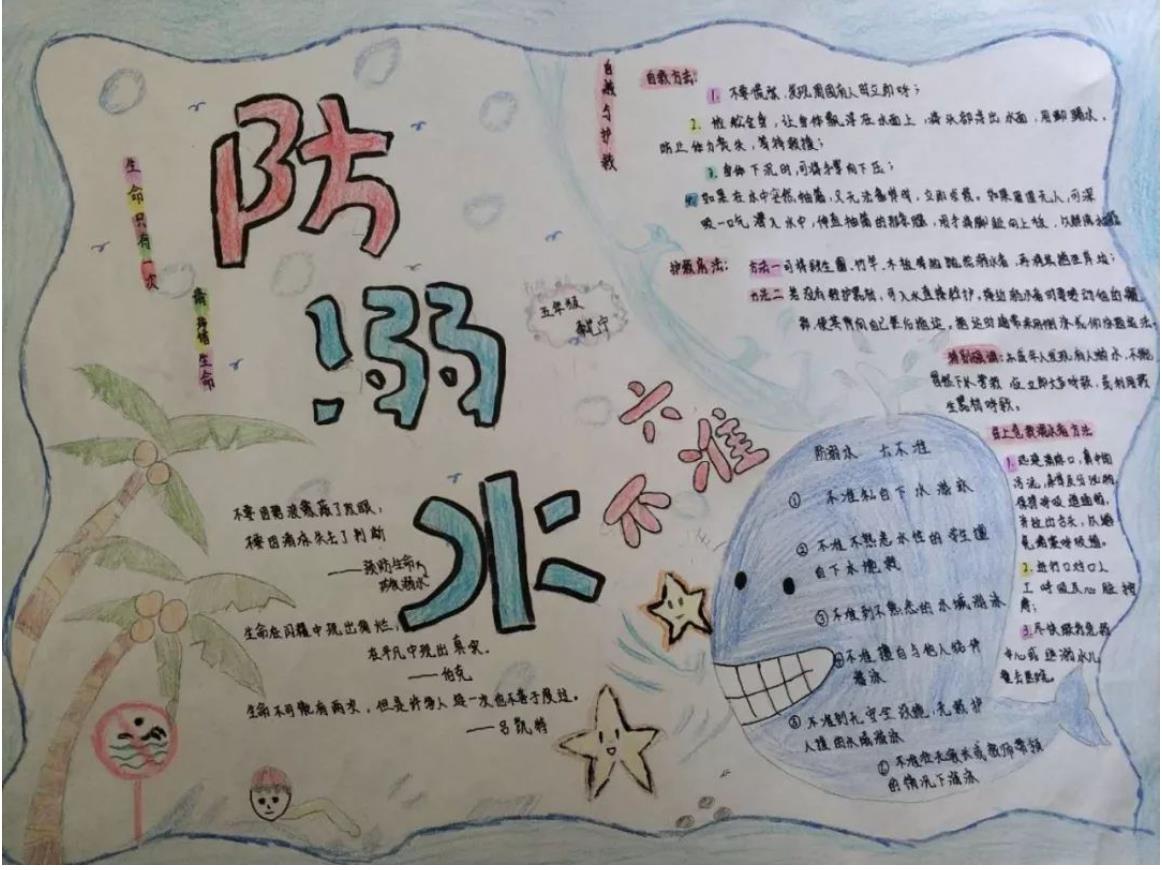 防
溺
水
生命只有一次
珍惜生命
五年级
六不准
自救与护救
自救方法：
1. 不要慌张，发现周围有人时立即呼；
2. 放松全身，让身体飘浮在水面上，将头部浮出水面，用脚踢水，
防止体力丧失，等待救援；
3. 身体下沉时，可将手掌向下压；
如果在水中突然抽筋，又无法靠岸时，立即求救。如果周围无人，可深
吸一口气潜入水中，伸直抽筋的那条腿，用手将脚趾向上扳，以解除抽筋
护救方法：方法一 可将救生圈、竹竿、木板等抛给溺水者，再将其拖至岸边；
方法二 若没有救护器材，可入水直接救护，接近溺水者时要转动他的髋
部，使其背向自己然后拖运，拖运时通常采用侧泳或仰泳拖运法。
特别强调：未成年人发现有人溺水，不能
冒然下水营救，应立即大声呼救，或利用救
生器材呼救。
岸上急救溺水者方法
1. 迅速清除口、鼻中的
污泥、杂草及分泌物，
保持呼吸道通畅，
并拉出舌头，以避
免堵塞呼吸道。
2. 进行口对口人
工呼吸及心脏按
摩；
3. 尽快联系急救
中心或送溺水儿
童去医院。
防溺水 六不准
① 不准私自下水游泳
② 不准不熟悉水性的学生擅
自下水施救
③ 不准到不熟悉的水域游泳
④ 不准擅自与他人结伴
游泳
⑤ 不准到无安全设施、无救护
人员的水域游泳
⑥ 不准在无家长或教师带领
的情况下游泳
不要因碧波荡漾蒙了双眼，
不要因清凉失去了判断
——预防生命
防溺水
生命在闪耀中现出绚烂，
在平凡中现出真实。
——伯克
生命不可能有两次，但是许多人连一次也不善于度过。
——吕凯特